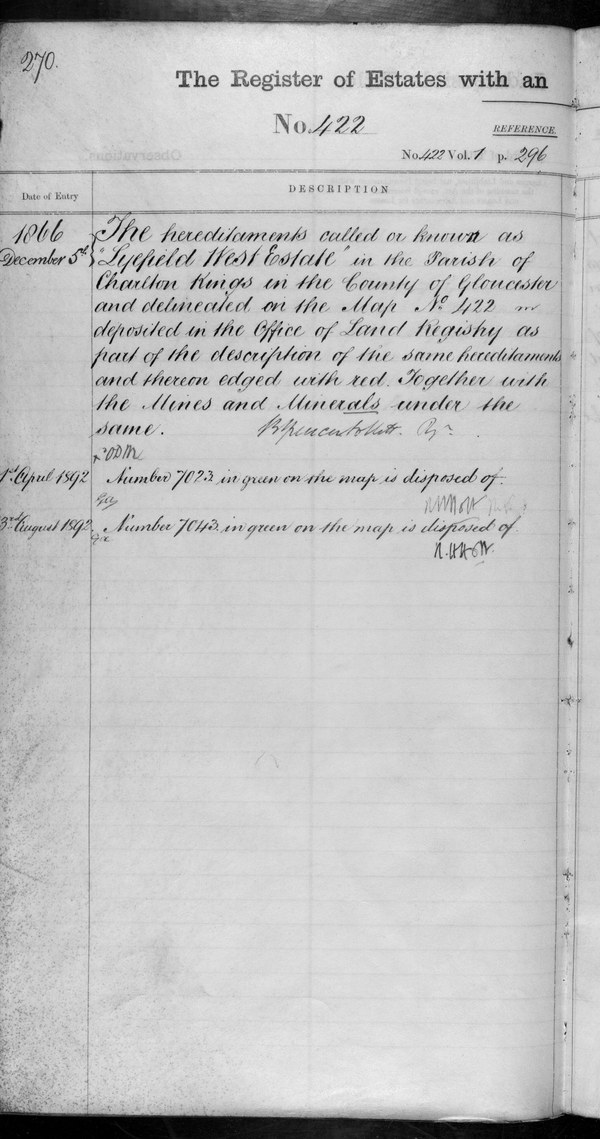 270.
The Register of Estates with an
No. 422
REFERENCE.
No. 422 Vol. 1 p. 296
Date of Entry
DESCRIPTION
1866 The hereditaments called or known as
December 5th "Lyefield West Estate" in the Parish of
Charlton Kings in the County of Gloucester
and delineated on the Map No 422
deposited in the Office of Land Registry as
part of the description of the same hereditaments
and thereon edged with red. Together with
the Mines and Minerals under the
same.
1st April 1892 Number 7023 in green on the map is disposed of.
3rd August 1892 Number 7043 in green on the map is disposed of